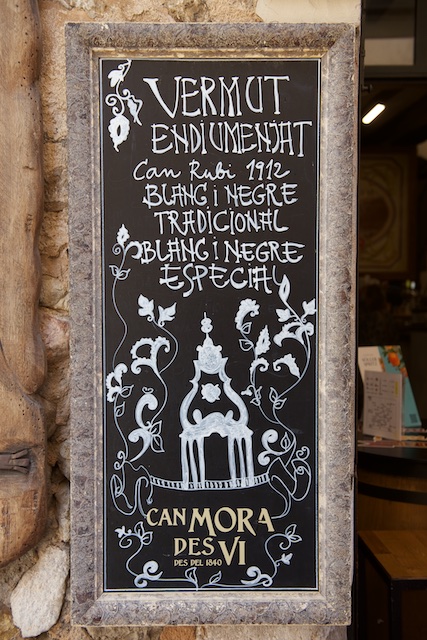 VERMUT
ENDIUMENJAT
Can Rubi 1912
BLANC i NEGRE
TRADICIONAL
BLANC i NEGRE
ESPECIAL
CAN MORA
DES VI
DES DEL 1840